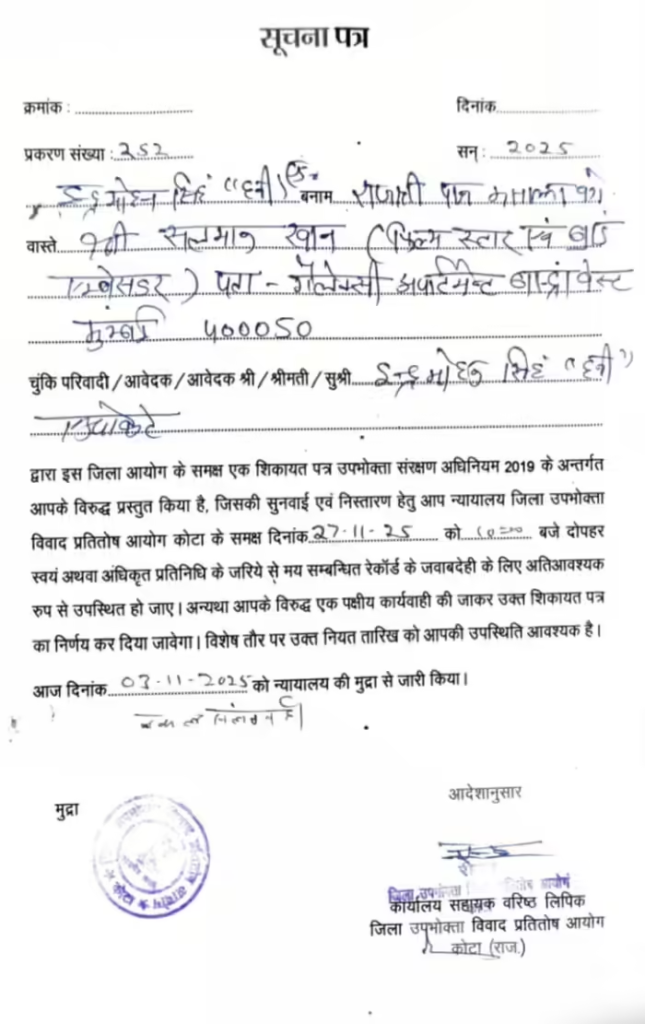 सूचना पत्र
क्रमांक : दिनांक
प्रकरण संख्या : 252 सन् : 2025
इन्द्रमोहन सिंह "हनी" बनाम राजश्री पान मसाला
वास्ते श्री सलमान खान (फिल्म स्टार एवं ब्रांड
एम्बेसडर) पता - गैलेक्सी अपार्टमेन्ट बान्द्रा वेस्ट
मुम्बई 400050
चुंकि परिवादी / आवेदक / आवेदक श्री / श्रीमती / सुश्री इन्द्रमोहन सिंह "हनी"
एडवोकेट
द्वारा इस जिला आयोग के समक्ष एक शिकायत पत्र उपभोक्ता संरक्षण अधिनियम 2019 के अन्तर्गत
आपके विरुद्ध प्रस्तुत किया है, जिसकी सुनवाई एवं निस्तारण हेतु आप न्यायालय जिला उपभोक्ता
विवाद प्रतितोष आयोग कोटा के समक्ष दिनांक 27-11-25 को 10=00 बजे दोपहर
स्वयं अथवा अंधिकृत प्रतिनिधि के जरिये से मय सम्बन्धित रेकॉर्ड के जवाबदेही के लिए अतिआवश्यक
रुप से उपस्थित हो जाए। अन्यथा आपके विरुद्ध एक पक्षीय कार्यवाही की जाकर उक्त शिकायत पत्र
का निर्णय कर दिया जावेगा। विशेष तौर पर उक्त नियत तारिख को आपकी उपस्थिति आवश्यक है।
आज दिनांक 03-11-2025 को न्यायालय की मुद्रा से जारी किया।
आदेशानुसार
मुद्रा
कोटा
कार्यालय सहायक वरिष्ठ लिपिक
जिला उपभोक्ता विवाद प्रतितोष आयोग
कोटा (राज.)